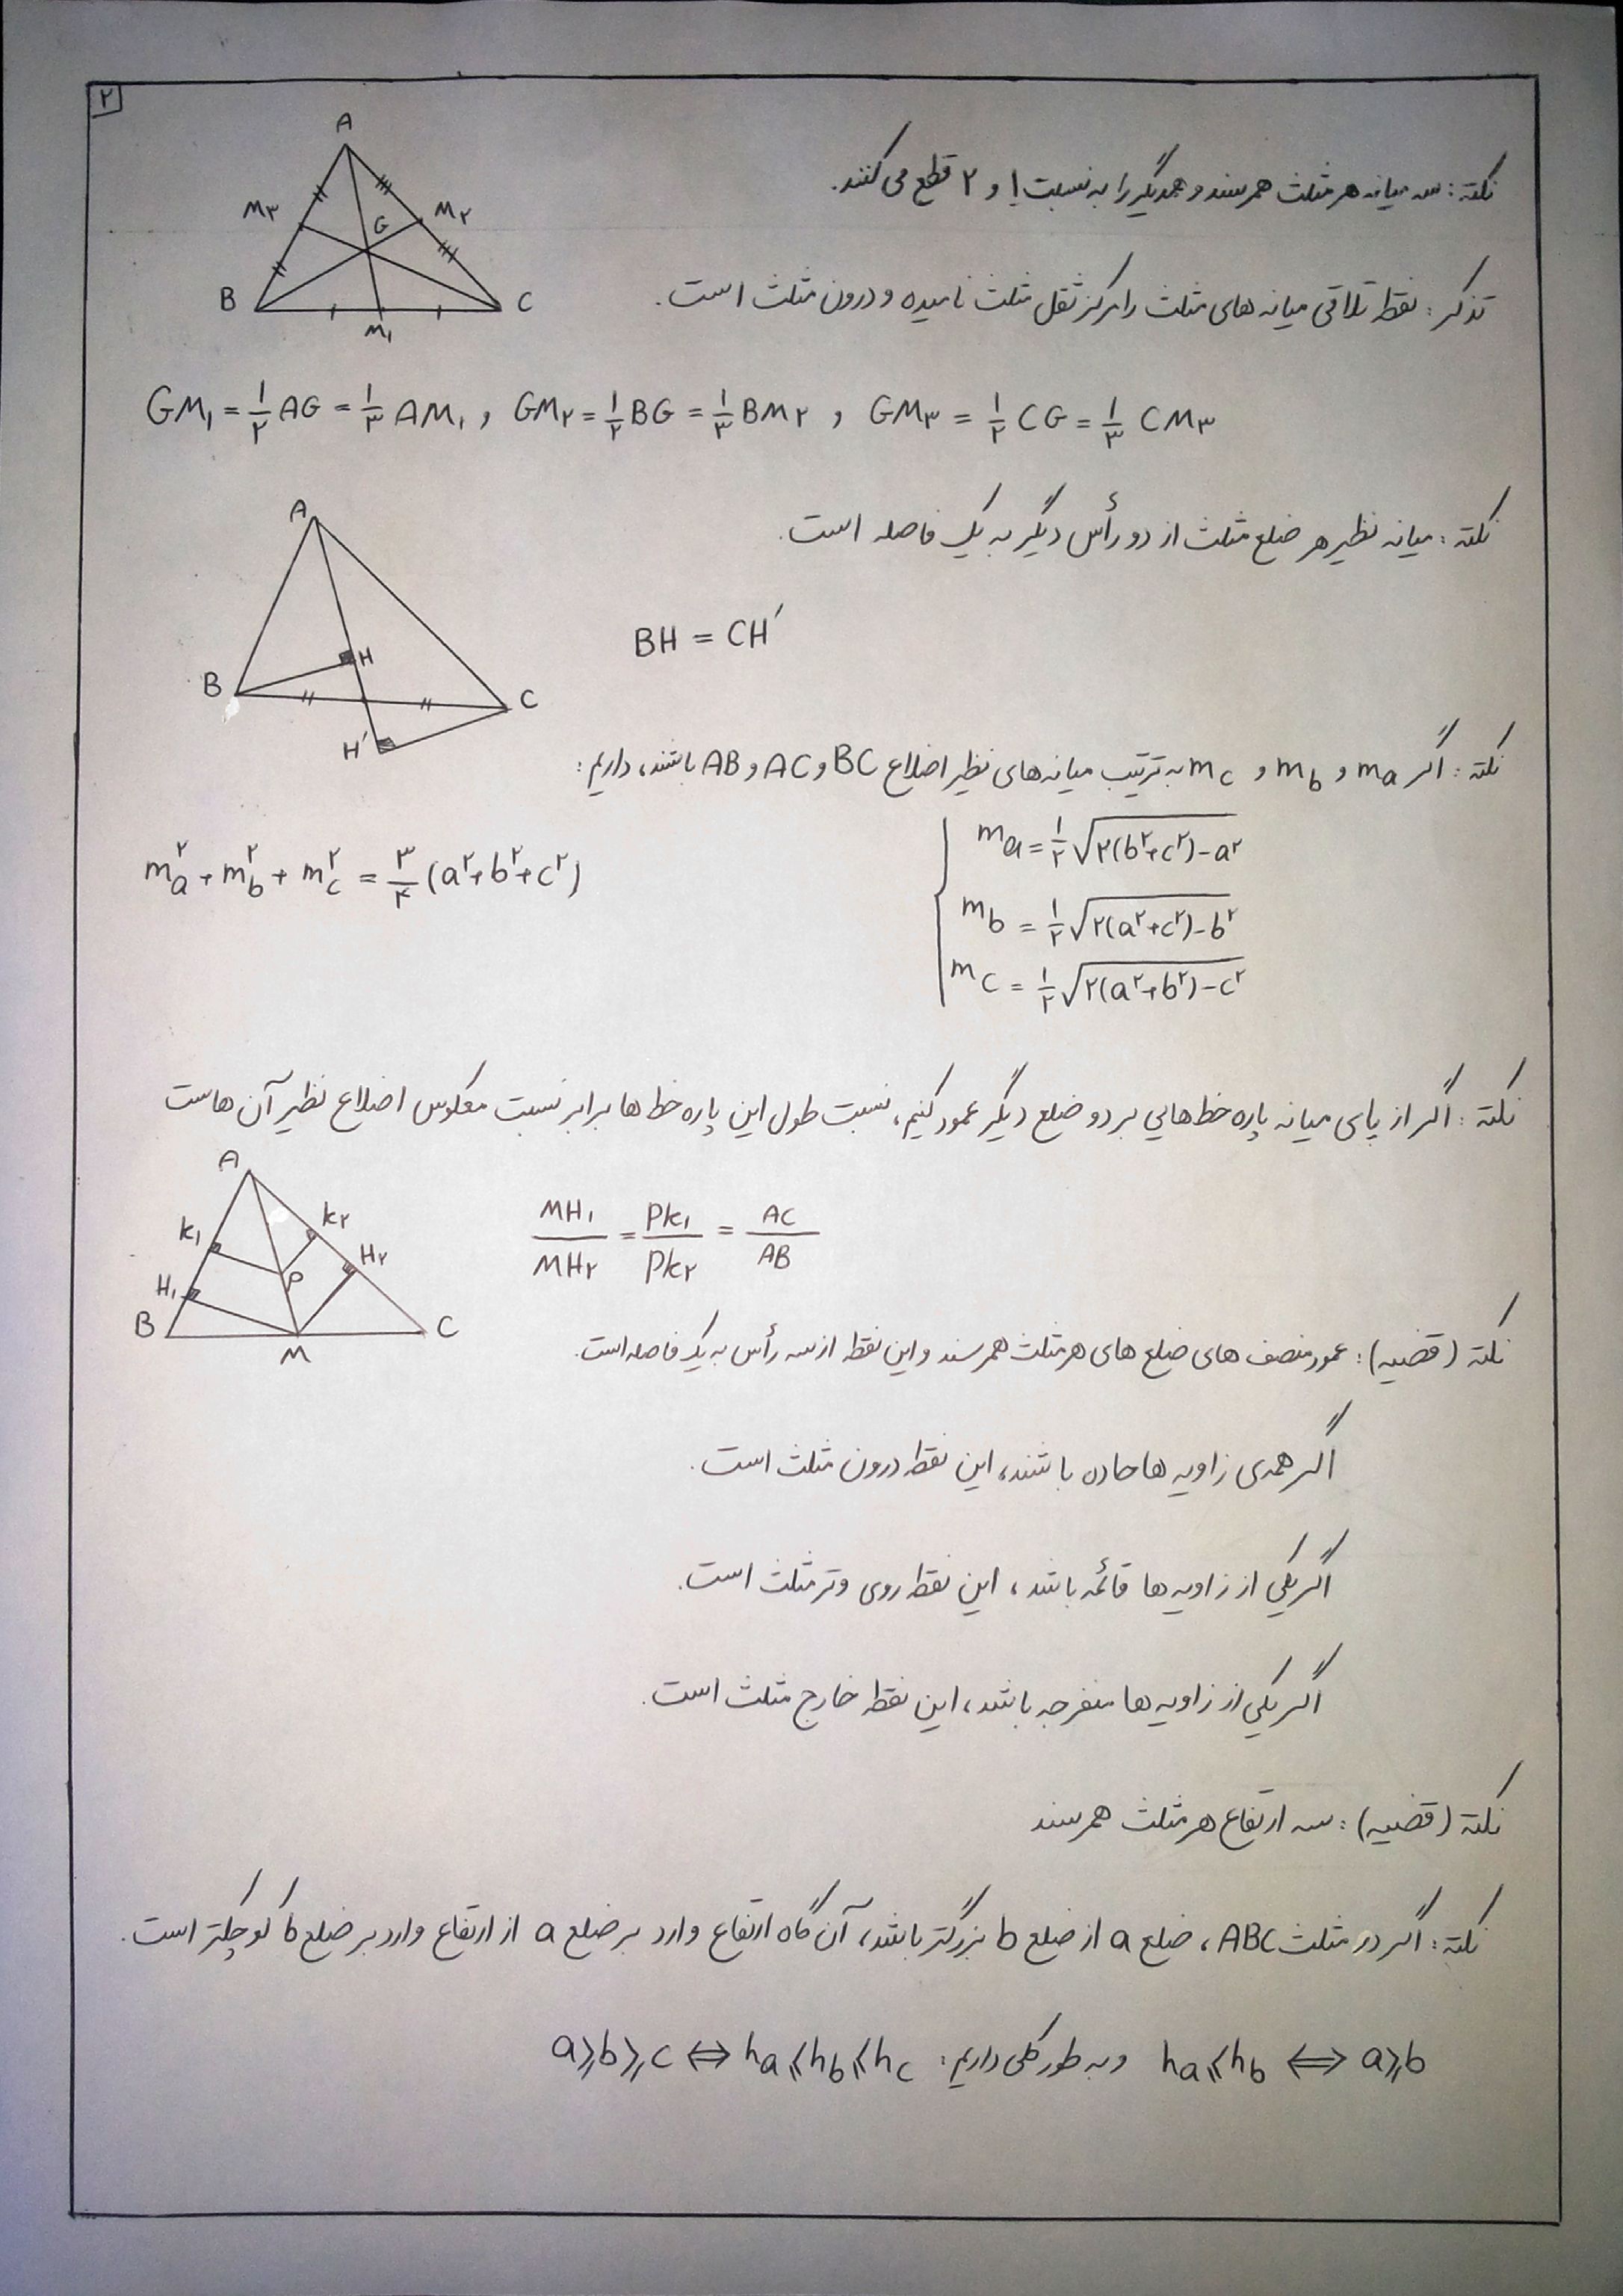 ۲
نکته: سه میانه هر مثلث همرسند و همدیگر را به نسبت ۱ و ۲ قطع می‌کنند.
A
M۳ G M۲
B C
M۱
تذکر: نقطه تلاقی میانه های مثلث را مرکز ثقل مثلث نامیده و درون مثلث است.
GM۱ = ۱/۲ AG = ۱/۳ AM۱ , GM۲ = ۱/۲ BG = ۱/۳ BM۲ , GM۳ = ۱/۲ CG = ۱/۳ CM۳
نکته: میانه نظیر هر ضلع مثلث از دو رأس دیگر به یک فاصله است.
A
H
B C
H′
BH = CH′
نکته: اگر ma و mb و mc به ترتیب میانه‌های نظیر اضلاع BC و AC و AB باشند، داریم:
ma = ۱/۲ √(۲(b²+c²)-a²)
mb = ۱/۲ √(۲(a²+c²)-b²)
mc = ۱/۲ √(۲(a²+b²)-c²)
ma² + mb² + mc² = ۳/۴ (a²+b²+c²)
نکته: اگر از پای میانه پاره خط‌هایی بر دو ضلع دیگر عمود کنیم، نسبت طول این پاره خط ها برابر نسبت معکوس اضلاع نظیر آن هاست
A
k۱ k۲
H۱ P H۲
B C
M
MH۱/MH۲ = Pk۱/Pk۲ = AC/AB
نکته (قضیه): عمودمنصف های ضلع های هر مثلث همرسند و این نقطه از سه رأس به یک فاصله است.
اگر همه‌ی زاویه ها حاده باشند، این نقطه درون مثلث است.
اگر یکی از زاویه ها قائمه باشد، این نقطه روی وتر مثلث است.
اگر یکی از زاویه ها منفرجه باشد، این نقطه خارج مثلث است.
نکته (قضیه): سه ارتفاع هر مثلث همرسند
نکته: اگر در مثلث ABC، ضلع a از ضلع b بزرگتر باشد، آن گاه ارتفاع وارد بر ضلع a از ارتفاع وارد بر ضلع b کوچکتر است.
ha⩽hb ⟺ a⩾b و به طور کلی داریم: a⩾b⩾c ⟺ ha⩽hb⩽hc